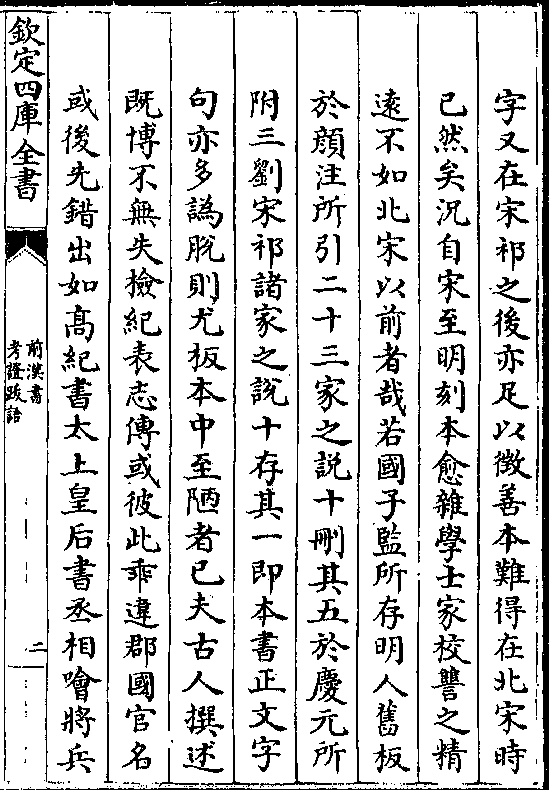 字又在宋祁之後亦足以徴善本難得在北宋時
已然矣況自宋至明刻本愈雜學士家校讐之精
逺不如北宋以前者哉若國子監所存明人舊板
於顔注所引二十三家之説十刪其五於慶元所
附三劉宋祁諸家之說十存其一即本書正文字
句亦多譌脱則尤板本中至陋者已夫古人撰述
既博不無失撿紀表志傳或彼此乖違郡國官名
或後先錯出如髙紀書太上皇后書丞相噲將兵
欽定四庫全書
前漢書
考證跋語
二